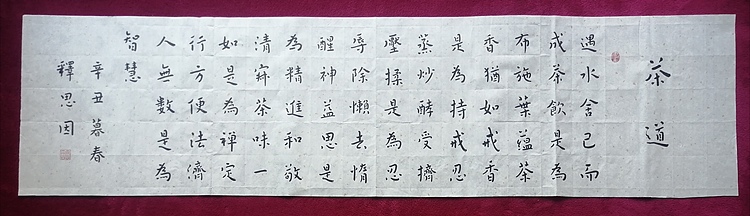 茶道
遇水舍己而
成茶飲是為
布施葉蘊茶
香猶如戒香
是為持戒忍
蒸炒酵受擠
壓揉是為忍
辱除懶去惰
醒神益思是
為精進和敬
清寂茶味一
如是為禪定
行方便法濟
人無數是為
智慧
辛丑暮春
釋思因